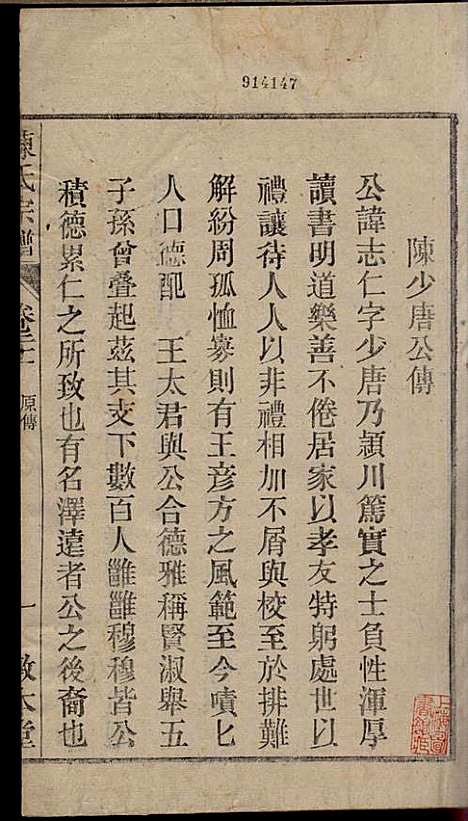 914147
陳少唐公傳
公諱志仁字少唐乃潁川篤實之士負性渾厚
讀書明道樂善不倦居家以孝友特躬處世以
禮讓待人人以非禮相加不屑與校至於排難
解紛周孤恤寡則有王彥方之風範至今嘖匕
人口德配 王太君與公合德雅稱賢淑舉五
子孫曾叠起茲其支下數百人雝雝穆穆皆公
積德累仁之所致也有名澤遠者公之後裔也
陳氏宗譜 卷二 原傳 一 敦本堂